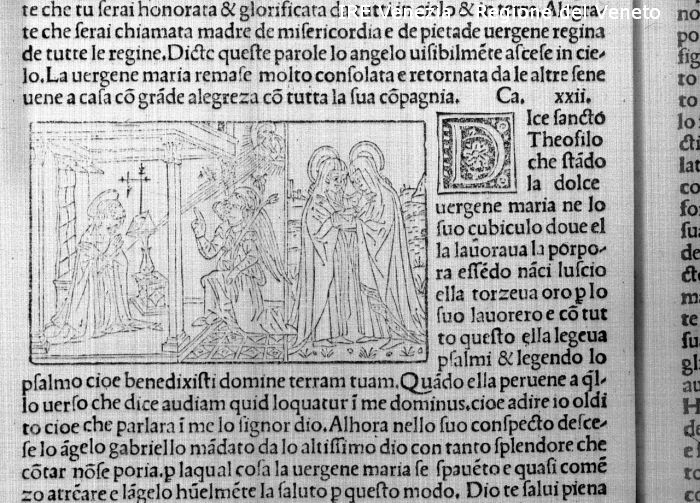 IRE Venezia - Regione del Veneto
te che tu serai honorata & glorificata da tutto el cielo & terra. Alhora
te che serai chiamata madre de misericordia e de pietade uergene regina
de tutte le regine. Dicte queste parole lo angelo uisibilmẽte ascese in cie-
lo. La uergene maria remase molto consolata e retornata da le altre sene
uene a casa cõ grãde alegreza cõ tutta la sua cõpagnia. Ca. xxii.
DIce sancto
Theofilo
che stãdo
la dolce
uergene maria ne lo
suo cubiculo doue el
la lauoraua la porpo-
ra essẽdo nãci luscio
ella torzeua oro ꝑ lo
suo lauorero e cõ tut
to questo ella legeua
psalmi & legendo lo
psalmo cioe benedixisti domine terram tuam. Quãdo ella peruene a q̃l-
lo uerso che dice audiam quid loquatur ĩ me dominus. cioe adire io oldi
to cioe che parlara ĩ me lo signor dio. Alhora nello suo conspecto desce-
se lo ãgelo gabriello mãdato da lo altissimo dio con tanto splendore che
cõtar nõse poria. ꝑ laqual cosa la uergene maria se spauẽto e quasi comẽ
zo atrẽare e lãgelo hũelmẽte la saluto ꝑ questo modo. Dio te salui piena